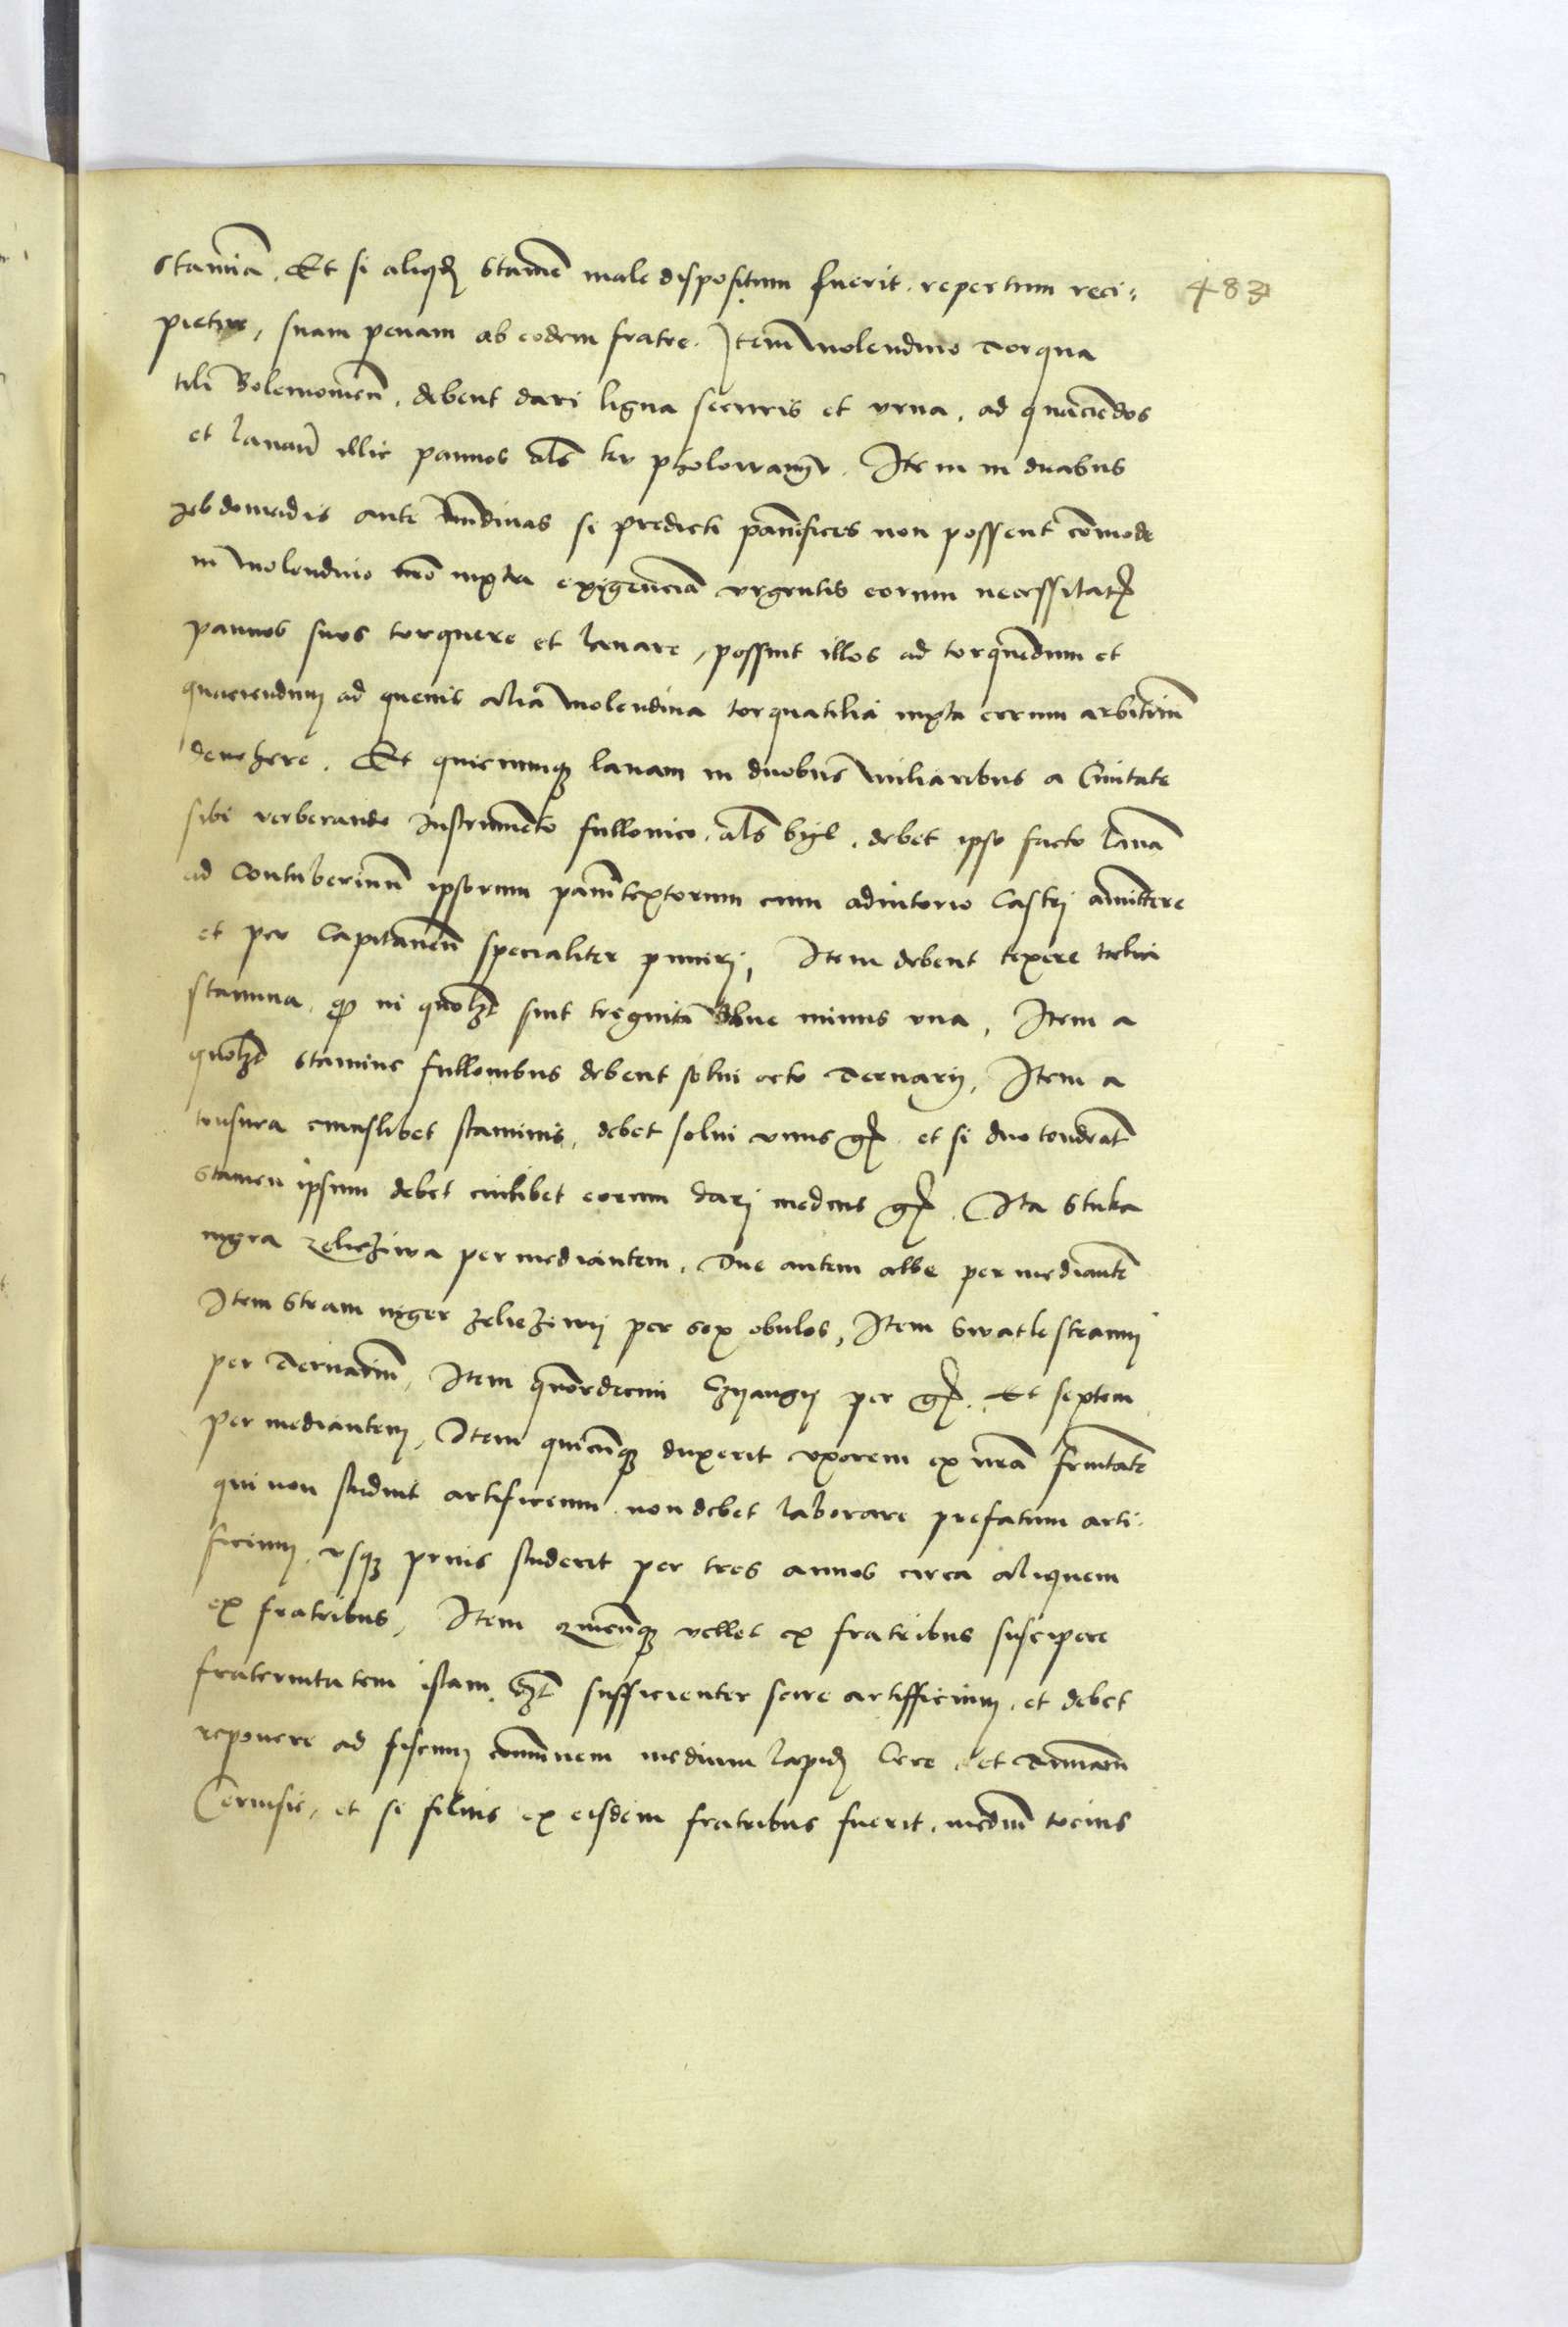 stamiā. Et si aliqđ stamē male dispositum fuerit repertum reci=
pietur, suam penam ab eodem fratre. Item molendino torqua
tili Bolemowien̄. debent dari ligna securis et vrna, ad quaciendos
et lauan̄ illic pannos als Item in duabus
zebdomadis ante nūdinas si predicti pānifices non possent cōmode
in molendino n̄ro iuxta exigenciā vrgentis eorum necessitat̄
pannos suos torquere et lauare, possint illos ad torquēdum et
quaciendum ad queuis alia molendina torquatilia iuxta eorum arbitriū
deuehere. Et quicumqȝ lanam in duobus miliaribus a Ciuitate
sibi verberando Instrumēto fullonico. als debet ipso facto lanā
ad Contuberniū ipsorum pānitextorum cum adiutorio Castri amittere
et per Capitaneū specialiter puniri, Item debent texere talia
stamina, qđ in quolȝt sint triginta vlne minus vna, Item a
quolȝt stamine fullonibus debent solui octo denarij, Item a
tonsura cuiuslibet staminis, debet solui vnus gř et si duo tondeāt
stamen ipsum debet cuilibet eorum dari medius gř. Ita Stuka
nigra zeliezīwa per mediantem. Due autem albe per mediantē
Item Stram niger zeliezīwij per sex obulos, Item Swatle stramij
per denariū, Item quordecim per gř. Et septem
per mediantem, Item quicūqȝ duxerit vxorem ex n̄ra fr̄nitate
qui non studuit artificium non debet laborare prefatum arti-
ficium, vsqȝ prius studerit per tres annos circa aliquem
ex fratribus, Item quicūqȝ vellet ex fratribus suscipere
fraternitatem istam, sufficienter scire artifficium, et debet
reponere ad fiscum cōmunem medium lapid̄ Cere, et
Ceruisie, et si filius ex eisdem fratribus fuerit, mediū tocius
483